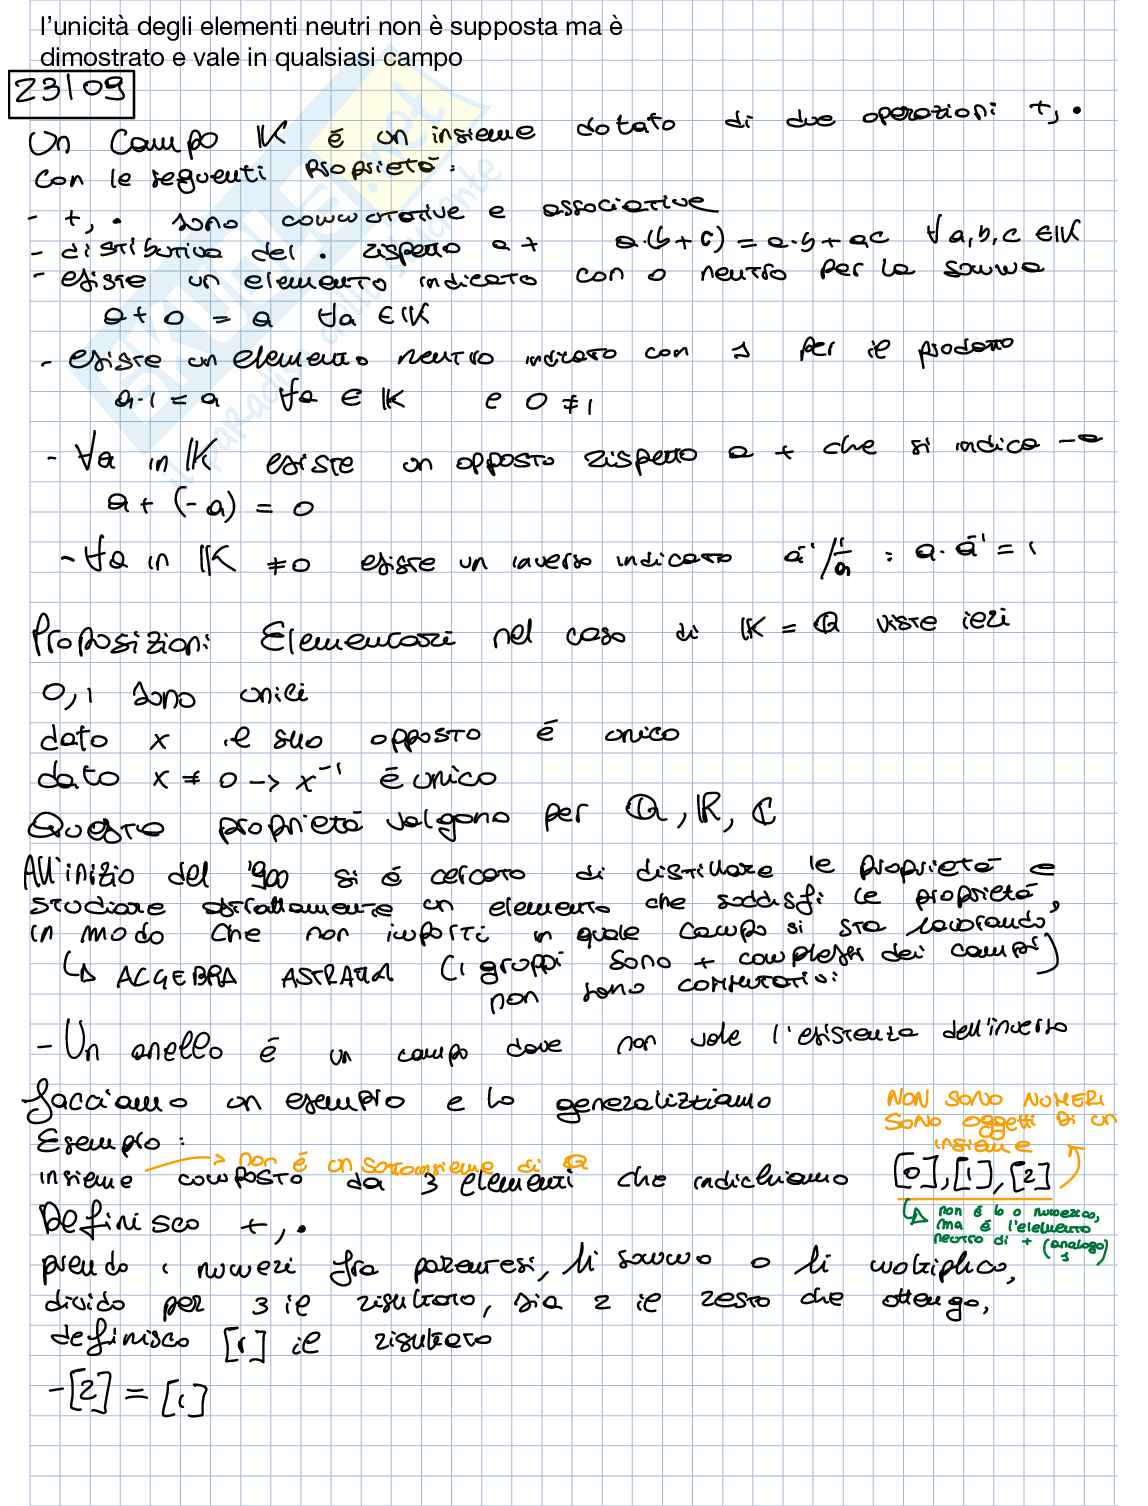 l'unicità degli elementi neutri non è supposta ma è
dimostrato e vale in qualsiasi campo
23/09
Un Campo 𝕂 è un insieme dotato di due operazioni +, •
con le seguenti proprietà:
- +, • sono commutative e associative
- distributiva del • rispetto a + a·(b+c) = a·b + ac ∀a,b,c ∈ 𝕂
- esiste un elemento indicato con 0 neutro per la somma
a + 0 = a ∀a ∈ 𝕂
- esiste un elemento neutro indicato con 1 per il prodotto
a·1 = a ∀a ∈ 𝕂 e 0 ≠ 1
- ∀a in 𝕂 esiste un opposto rispetto a + che si indica -a
a + (-a) = 0
- ∀a in 𝕂 ≠ 0 esiste un inverso indicato a⁻¹/ 1/a : a·a⁻¹ = 1
Proposizioni Elementari nel caso di 𝕂 = ℚ viste ieri
0,1 sono unici
dato x il suo opposto è unico
dato x ≠ 0 -> x⁻¹ è unico
Queste proprietà valgono per ℚ, ℝ, ℂ
All'inizio del '900 si è cercato di distillare le proprietà e
studiare astrattamente un elemento che soddisfi le proprietà,
in modo che non importi in quale campo si sta lavorando
↳ ALGEBRA ASTRATTA (i gruppi sono + complessi dei campi)
non sono commutativi
- Un anello è un campo dove non vale l'esistenza dell'inverso
facciamo un esempio e lo generalizziamo
NON SONO NUMERI
SONO oggetti DI un
insieme
Esempio:
→ non è un sottoinsieme di ℚ
insieme composto da 3 elementi che indichiamo [0],[1],[2]
↳ non è lo 0 numerico,
ma è l'elemento
neutro di + (analogo)
1
Definisco +, •
prendo i numeri fra parentesi, li sommo o li moltiplico,
divido per 3 il risultato, sia r il resto che ottengo,
definisco [r] il risultato
-[2] = [1]